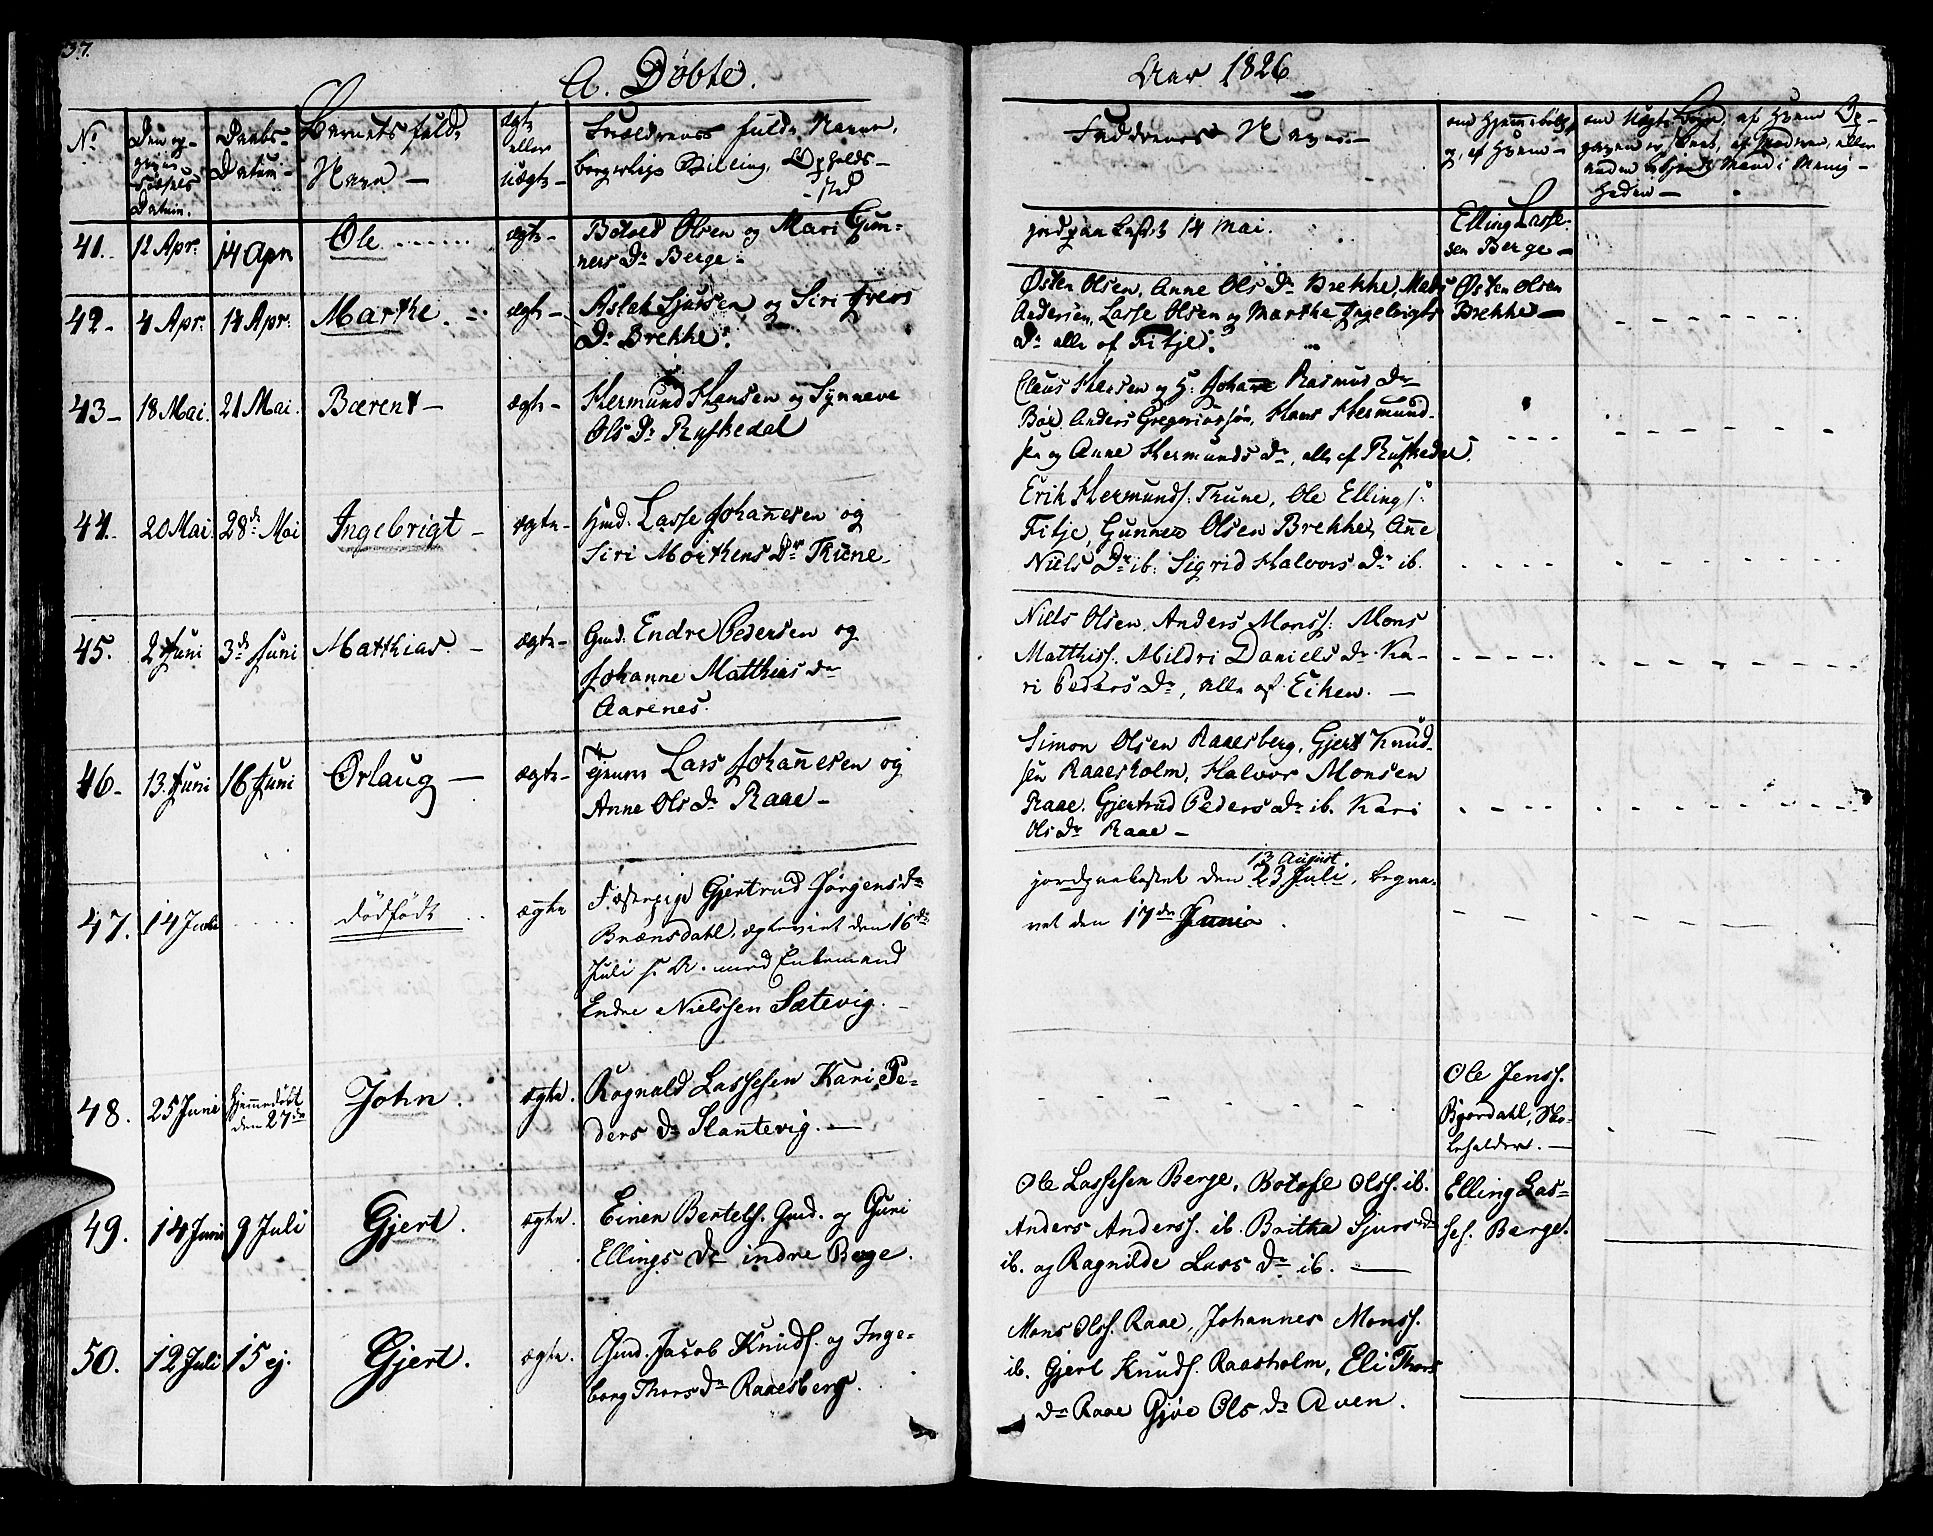 37.
A. Döbte.
Aar 1826
No
Døbs-
Datum
Barnets fulde
Navn —
ægte
eller
uægte —
Forældrenes fulde Navne,
borgerlige Stilling, Opholds-
sted
Faddrenes Navne. —
om Hjemmedøbt,
og af hvem —
41. 12 Apr. 14 Apr. Ole ægte —
Botved Olsen og Mari Gun=
ners Dr Berge.
jordpaakastet 14 Mai.
Elling Lasse-
sen Berge —
42 — 4 Apr. 14 Apr. Marthe. ægte —
Aslak Sjursen og Siri Ivers
Dr Brekke.
Østen Olsen, Anne Ols Dr Brekke, Mads
Andersen, Lasse Olsen og Marthe Ingebrigts
Dr alle af Fitje.
Østen Olsen
Brekke —
43 — 18 Mai. 21 Mai. Bærent — ægte —
Hermund Hansen og Synneve
Ols Dr Rufsedal
Claus Hansen og H: Johanne Rasmus Dr
Bøe. Anders Gregoriussøn, Hans Hermund-
sen og Anne Hermunds Dr, alle af Rufsedal.
44. 20 Mai. 28de Mai Ingebrigt — ægte —
Hmd. Lasse Johannesen og
Siri Moithens Dr Thune —
Erik Hermunds. Thune, Ole Ellings.
Fitje, Gunner Olsen Brekke, Ane
Niels Dr ib. Sigrid Halvors Dr ib.
45. 2 Juni 3de Juni Matthias — ægte —
Gmd. Endre Pedersen og
Johanne Matthias Dr
Aarenes.
Niels Olsen, Anders Monss. Mons
Matthiss. Mildri Daniels Dr. Ka-
ri Peders Dr, alle af Eiken. —
46 — 13 Juni 16 Juni Orlaug — ægte —
Lars Johannesen og
Anne Ols Dr Raae —
Simon Olsen Raaesberg, Gjert Knud-
sen Raaesholm, Halvor Monsen
Raae. Gjertrud Peders Dr ib. Kari
Ols Dr Raae —
47. 14 Juni dödfödt ægte
Fæstepige Gjertrud Jørgens Dr
Brænsdahl, ægteviet den 16de
Juli s. A. med Enkemand
Endre Nielssen Sætevig. —
13 August.
jordpaakastet den 23 Juli, begra-
vet den 17de Junio.
48. 25 Juni Hjemmedøbt
den 27de John. ægte.
Rognald Lassesen Kari Pe-
ders Dr Slantevig. —
Ole Jenss.
Bjordahl, Sko-
leholder. —
49. 14 Juni 9 Juli Gjert. ægte.
Einer Bertels. Gmd. og Guri
Ellings Dr indre Berge.
Ole Lassesen Berge, Botolf Olss. ib.
Anders Anderss. ib. Britha Sjurs Dr
ib. og Ragnilde Lars Dr ib. —
Elling Las=
ses. Berge.
50. 12 Juli 15 ej. Gjert. ægte.
Gmd. Jacob Knuds. og Inge=
borg Thors Dr Raaesberg.
Mons Olss. Raae, Johannes Monss.
ib. Gjert Knuds. Raasholm, Eli Thors
Dr Raae Gjøe Ols Dr Aven.